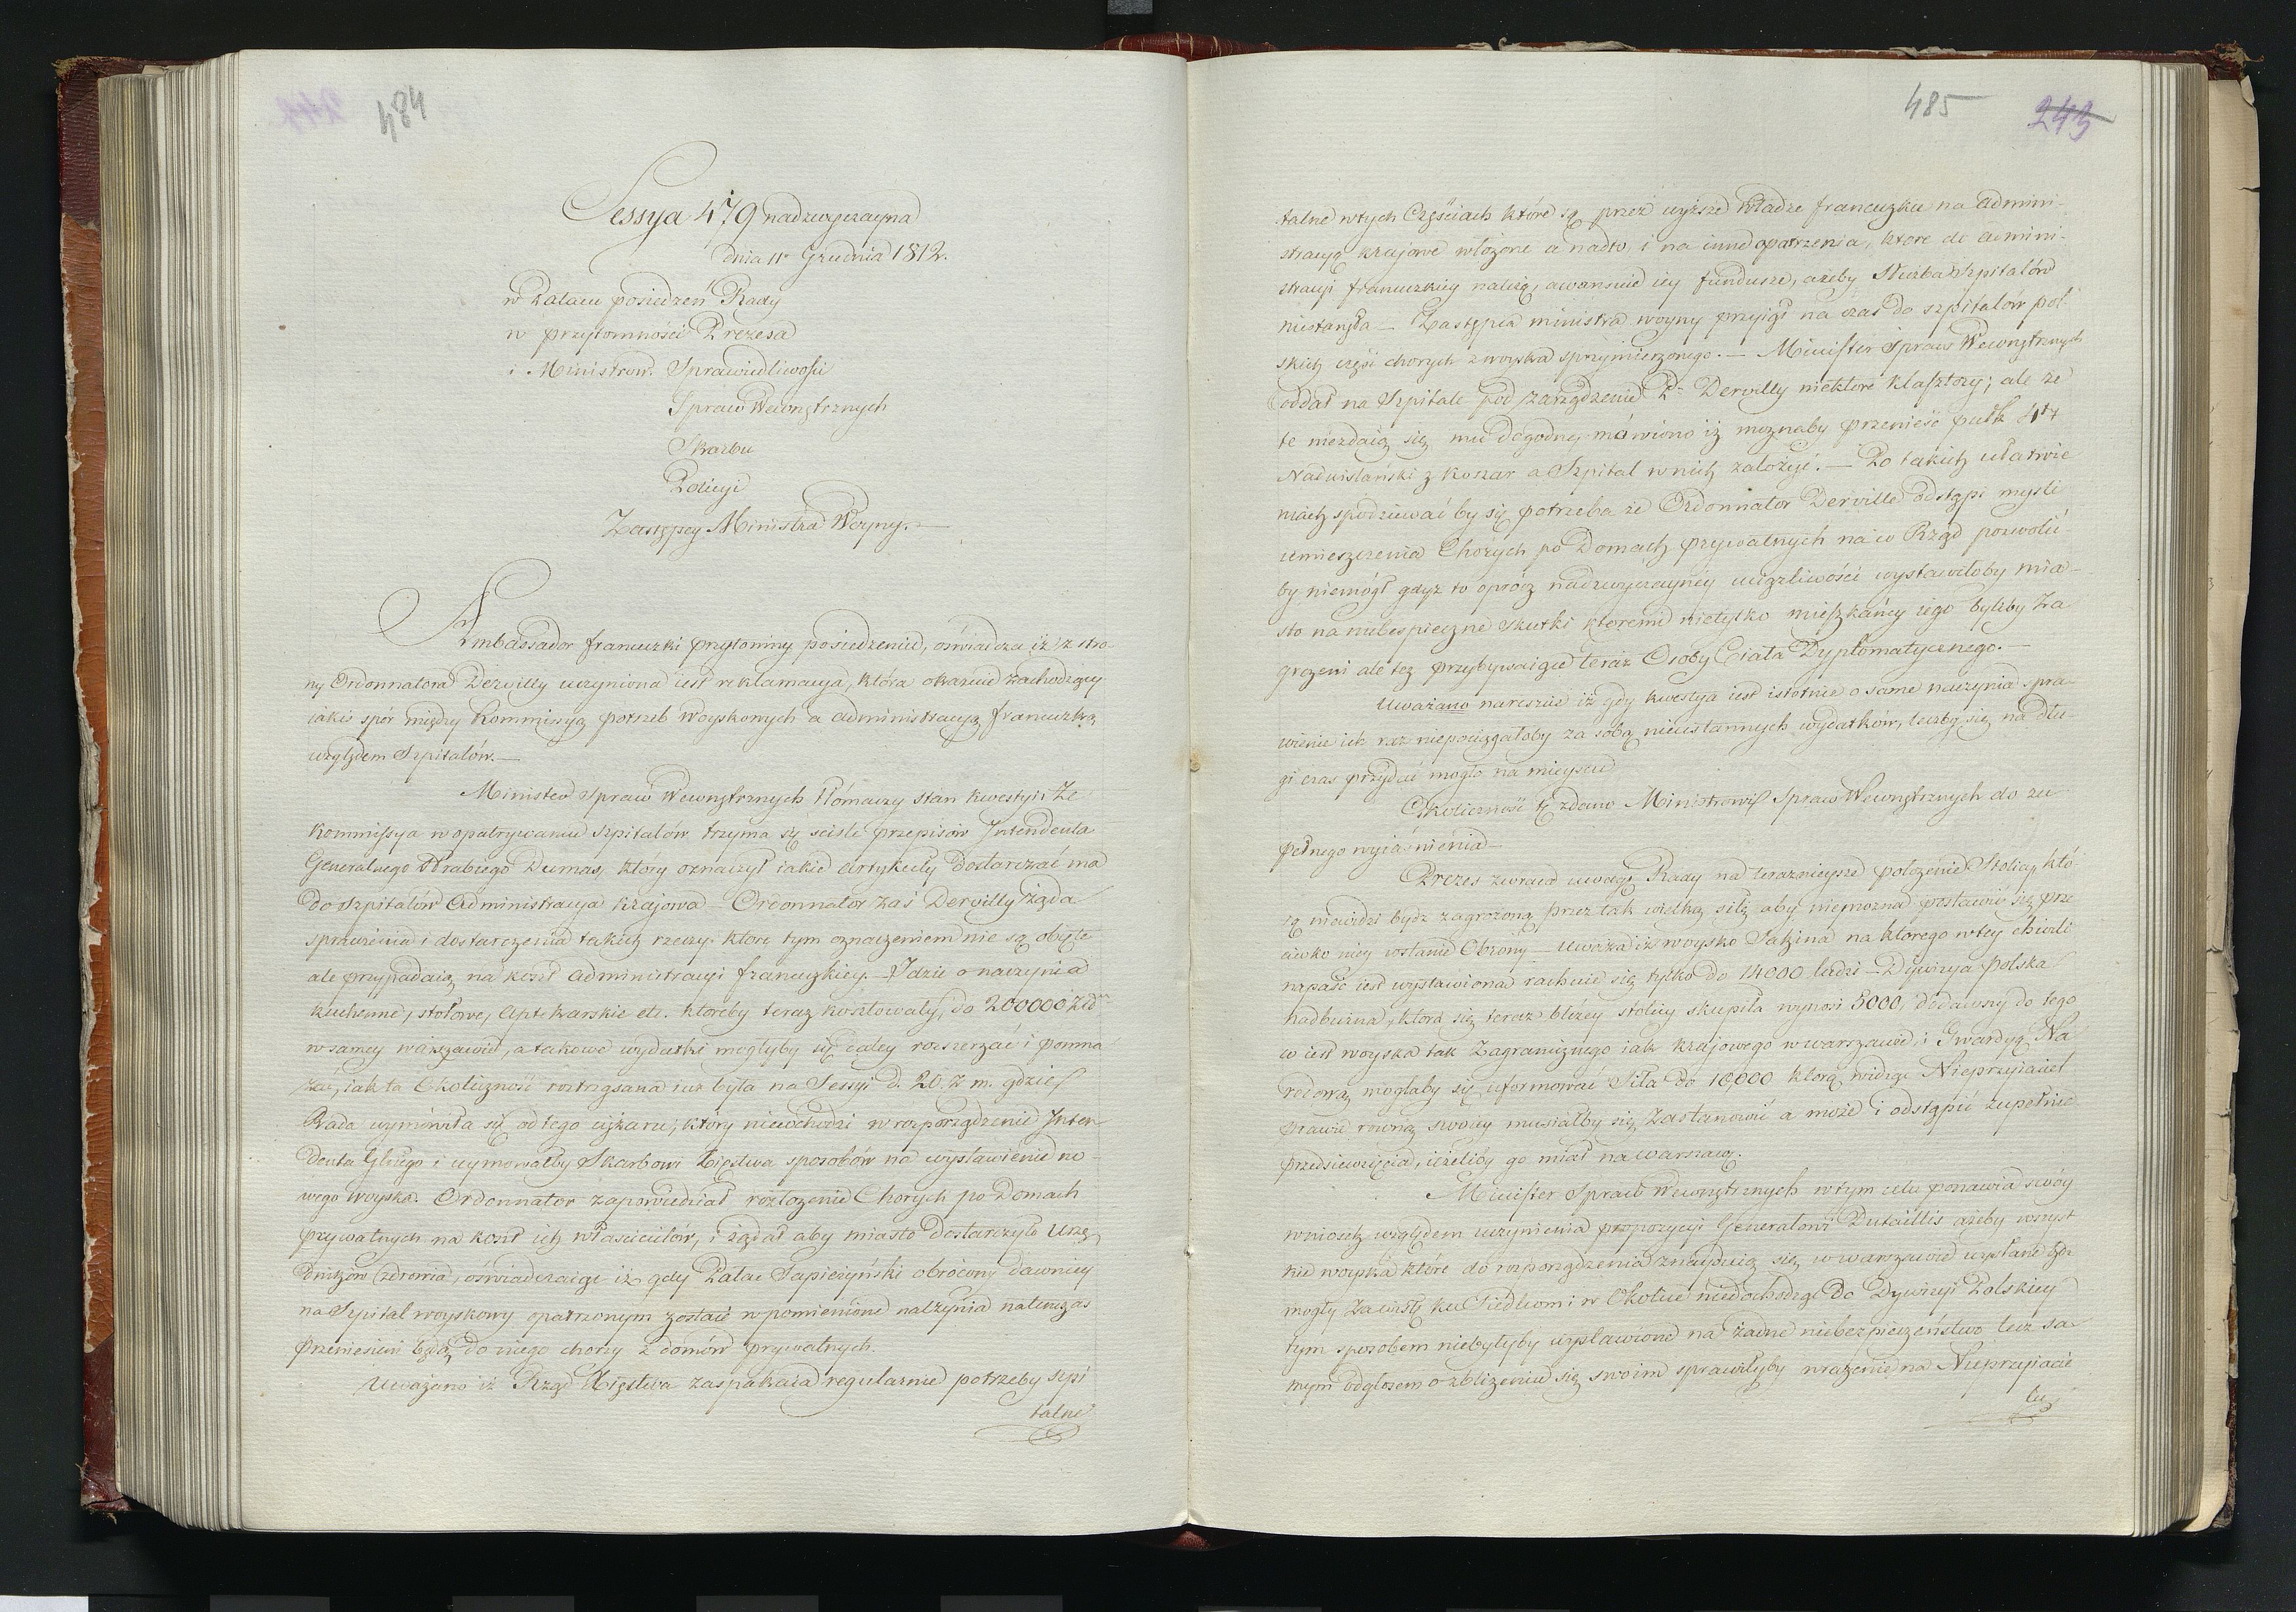 484
Sessya 479 nadzwyczayna
dnia 11º Grudnia 1812.
w Pałacu posiedzeń Rady
w przytomności Prezesa
i Ministrów. Sprawiedliwości
Spraw Wewnętrznych
Skarbu
Policyi
Zastępcy Ministra Woyny.—
Ambassador francuzki przytomny posiedzeniu, oświadcza iż ze stro-
ny Ordonnatora Dervilly uczyniona iest reklamacya, która okazuie zachodzący
iakiś spór między Kommissyą potrzeb woyskowych a administracyą francuzką
względem Szpitalów.—
Minister Spraw Wewnętrznych tłómaczy stan kwestyi; Że
Kommissya w opatrywaniu Szpitalów trzyma się ściśle przepisów Intendenta
Generalnego Hrabiego Dumas, który oznaczył iakie artykuły dostarczać ma
do Szpitalów Administracya kraiowa — Ordonnator zaś Dervilly żąda
sprawienia i dostarczenia takich rzeczy które tym oznaczeniem nie są obięte
ale przypadaią na koszt administracyi francuzkiey.— Idzie o naczynia
kuchenne, stołowe, Aptekarskie etc. któreby teraz kosztowały, do 200000 Zł
w samey warszawie, a takowe wydatki mogłyby się daley rozszerzać i pomna
żać, iak ta Okoliczność roztrząsana iuż była na Sessyi d. 20. z. m. gdzie
Rada wymówiła się od tego ciężaru, który niewchodzi w rozporządzenie Inten
denta Głłnego i uymowałby Skarbowi Xięstwa sposobów na wystawienie no-
wego woyska. Ordonnator zapowiedział rozłożenie Chorych po Domach
prywatnych na koszt ich właścicielów, i żądał aby miasto dostarczyło Urzę
dników zdrowia, oświadczaiąc iż gdy Pałac Sapieżyński obrócony dawniey
na Szpital woyskowy opatrzonym zostanie w pomienione naczynia natenczas
przeniesieni będą do niego chorzy z domów prywatnych.
Uważano iż Rząd Xięstwa zaspakaia regularnie potrzeby szpi
talne
485 243
talne w tych Częściach które są przez wyższe władze francuzkie na admini-
stracyą kraiową włożone a nadto i na inne opatrzenia, które do admini-
stracyi francuzkiey należą, awansuie iey fundusze, ażeby służba Szpitalów
nieustanęła — Zastępca ministra woyny przyiął na czas do szpitalów pol
skich część chorych z woyska sprzymierzonego. — Minister Spraw Wewnętrznych
oddał na Szpitale pod zarządzenie P. Dervilly niektóre klasztory; ale że
te niezdaią się mu dogodne mówiono iż możnaby przenieść pułk 4ty
Nadwiślański z koszar a Szpital w nich założyć.— Po takich ułatwie
niach spodziewać by się potrzeba że Ordonnator Derville odstąpi myśli
umieszczenia Chorych po Domach prywatnych na co Rząd pozwolić
by niemógł gdyż to oprócz nadzwyczayney uciążliwości wystawiłoby mia-
sto na niebespieczne skutki któremi nietylko mieszkańcy iego byliby za
grożeni ale też przybywaiące teraz Osoby Ciała Dyplomatycznego.—
Uważano nareszcie iż gdy kwestya iest istotnie o same naczynia spra-
wienie ich raz niepociągałoby za sobą nieustannych wydatków, leczby się na dłu-
gi czas przydać mogło na mieyscu
Okoliczność tę zdano Ministrowi Spraw Wewnętrznych do zu
pełnego wyiaśnienia—
Prezes zwraca uwagę Rady na teraźnieysze położenie Stolicy, któ
rą niewidzi bydź zagrożoną przez tak wielką siłę aby niemożna postawić się prze
ciwko niey w stanie Obrony — uważa iż woysko Sakina na którego w tey chwili
napaść iest wystawiona rachuie się tylko do 14000 ludzi — Dywizya Polska
nadbużna, która się teraz bliżey stolicy skupiła wynosi 5000, dodawszy do tego
co iest woyska tak Zagranicznego iak kraiowego w warszawie, i Gwardyą Na
rodową mogłaby się uformować Siła do 10,000 którą widząc Nieprzyiaciel
prawie równą swoiey musiałby się zastanowić a może i odstąpić zupełnie
przedsięwzięcia, ieżeliby go miał na warszawę.
Minister Spraw Wewnętrznych w tym celu ponawia swóy
wniosek względem uczynienia propozycyi Generałowi Dutaillis ażeby wszyst
kie woyska które do rozporządzenia znayduią się w warszawie wysłane być
mogły za wisłę ku Siedlcom i w Okolice niedochodząc do Dywizyi Polskiey
tym sposobem niebyłyby wystawione na żadne niebezpieczeństwo lecz sa-
mym odgłosem o zbliżeniu się swoim sprawiłyby wrażenie na Nieprzyiacie
lu,